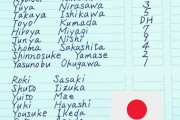 Yuya Nirasawa 3
Takaya Ishikawa 5
Toyo Kumada DH
Hiroya Miyagi 6
Junya Nishi 9
Shoma Sakashita 4
Shinnosuke Yamase 2
Yasunobu Okugawa 7
Roki Sasaki
Shuto Iizuka
Yuito Mae
Yuki Hayashi
Yousuke Ikeda